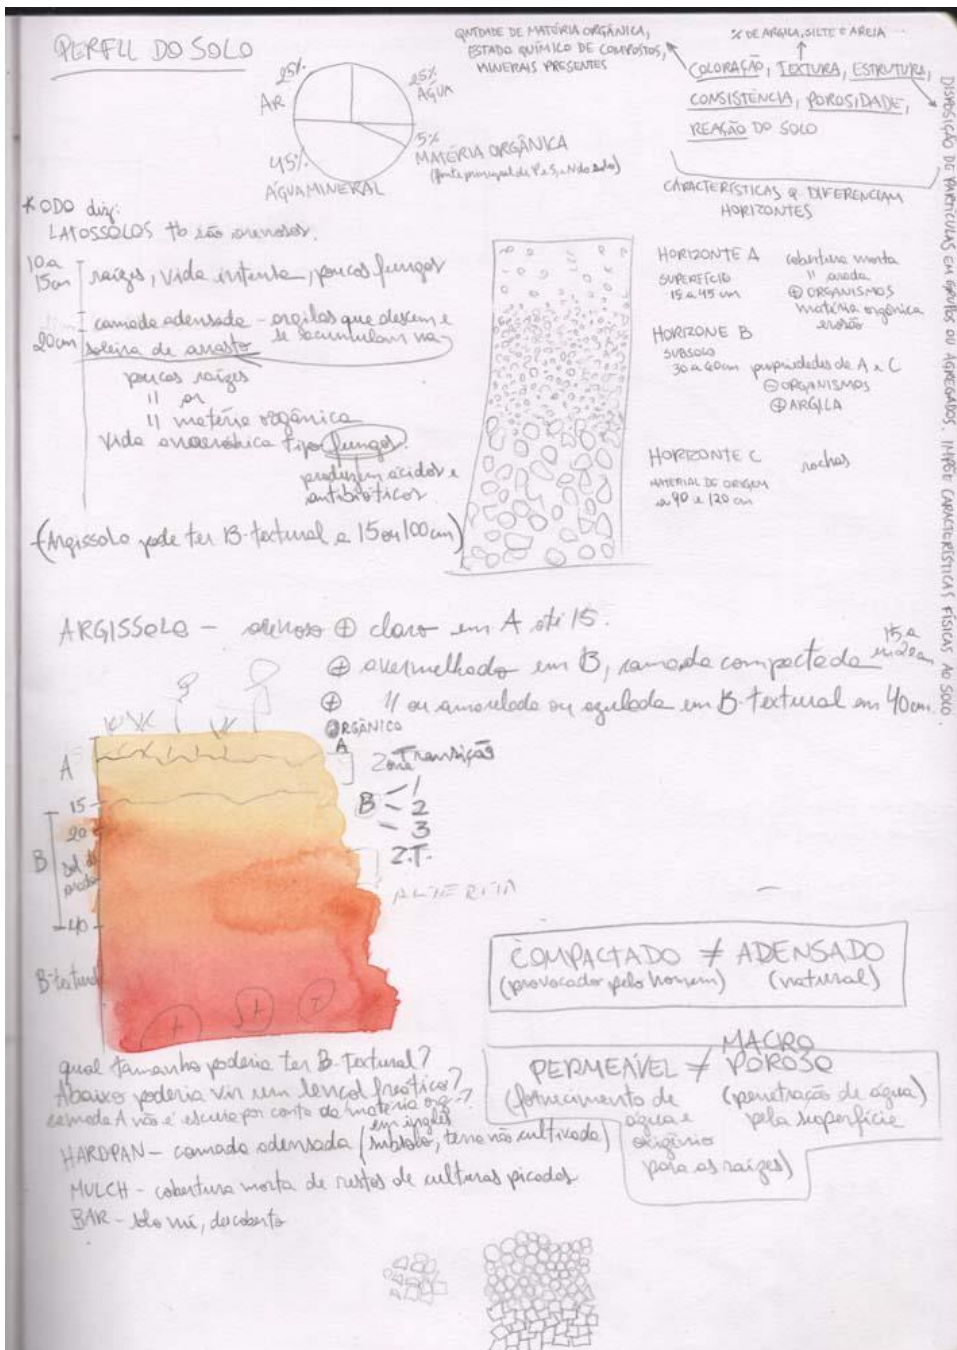 PERFIL DO SOLO
25%
AR
25%
ÁGUA
5%
MATÉRIA ORGÂNICA
(fonte principal de P e S, e N do solo)
45%
ÁGUA MINERAL
QNTIDADE DE MATÓRIA ORGÂNICA,
ESTADO QUÍMICO DE COMPOSTOS,
MINERAIS PRESENTES
% DE ARGILA, SILTE E AREIA
COLORAÇÃO, TEXTURA, ESTRUTURA,
CONSISTÊNCIA, POROSIDADE,
REAÇÃO DO SOLO
CARACTERÍSTICAS Q DIFERENCIAM
HORIZONTES
DISPOSIÇÃO DE PARTÍCULAS EM GRUPOS OU AGREGADOS. IMPÕE CARACTERÍSTICAS FÍSICAS AO SOLO
* ODO diz:
LATOSSOLOS tb são arenosos.
10 a
15cm
raízes, vida intensa, poucos fungos
20cm
camada adensada - argilas que descem e
se acumulam na
soleira de arrasto
poucas raízes
" ar
" matéria orgânica
vida anaeróbica tipo fungos.
produzem ácidos e
antibióticos.
(Argissolo pode ter B-textural a 15 ou 100cm)
HORIZONTE A
SUPERFÍCIO
15 a 45 cm
cobertura morta
" arada
⊕ ORGANISMOS
matéria orgânica
erosão
HORIZONE B
SUBSOLO
30 a 60cm
propriedades de A e C
⊖ ORGANISMOS
⊕ ARGILA
HORIZONTE C
MATERIAL DE ORIGEM
a 90 e 120 cm
rochas
ARGISSOLO - arenoso ⊕ claro em A até 15.
⊕ avermelhado em B, camada compactada 15 a
em 20cm
⊕ " ou amarelado ou azulado em B-textural em 40cm.
ORGÂNICO
A
Zona Transição
B - 1
- 2
- 3
Z.T.
ALTERITA
A
15
20
B
sol. de
arrasto
40
B-textural
COMPACTADO ≠ ADENSADO
(provocador pelo homem) (natural)
MACRO
PERMEÁVEL ≠ POROSO
(fornecimento de
água e
oxigênio
para as raízes)
(penetração de água)
pela superfície
qual tamanho poderia ter B-textural?
Abaixo poderia vir um lençol freático?
camada A não é escura por conta da matéria org.?
em inglês
HARDPAN - camada adensada (subsolo, terra não cultivada)
MULCH - cobertura morta de restos de culturas picados
BAR - solo nú, descoberto